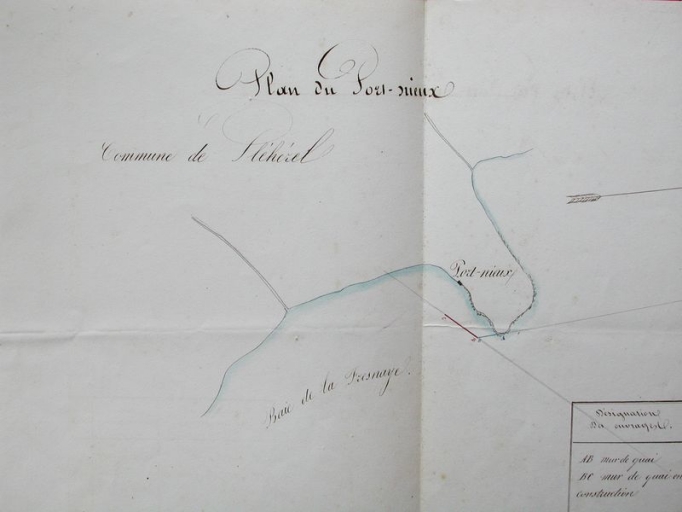 Plan du Port-nieux
Commune de Pléhérel
Port-nieux
Baie de la Fresnaye
Désignation
Des ouvrages.
AB mur de quai
BC mur de quai en
construction